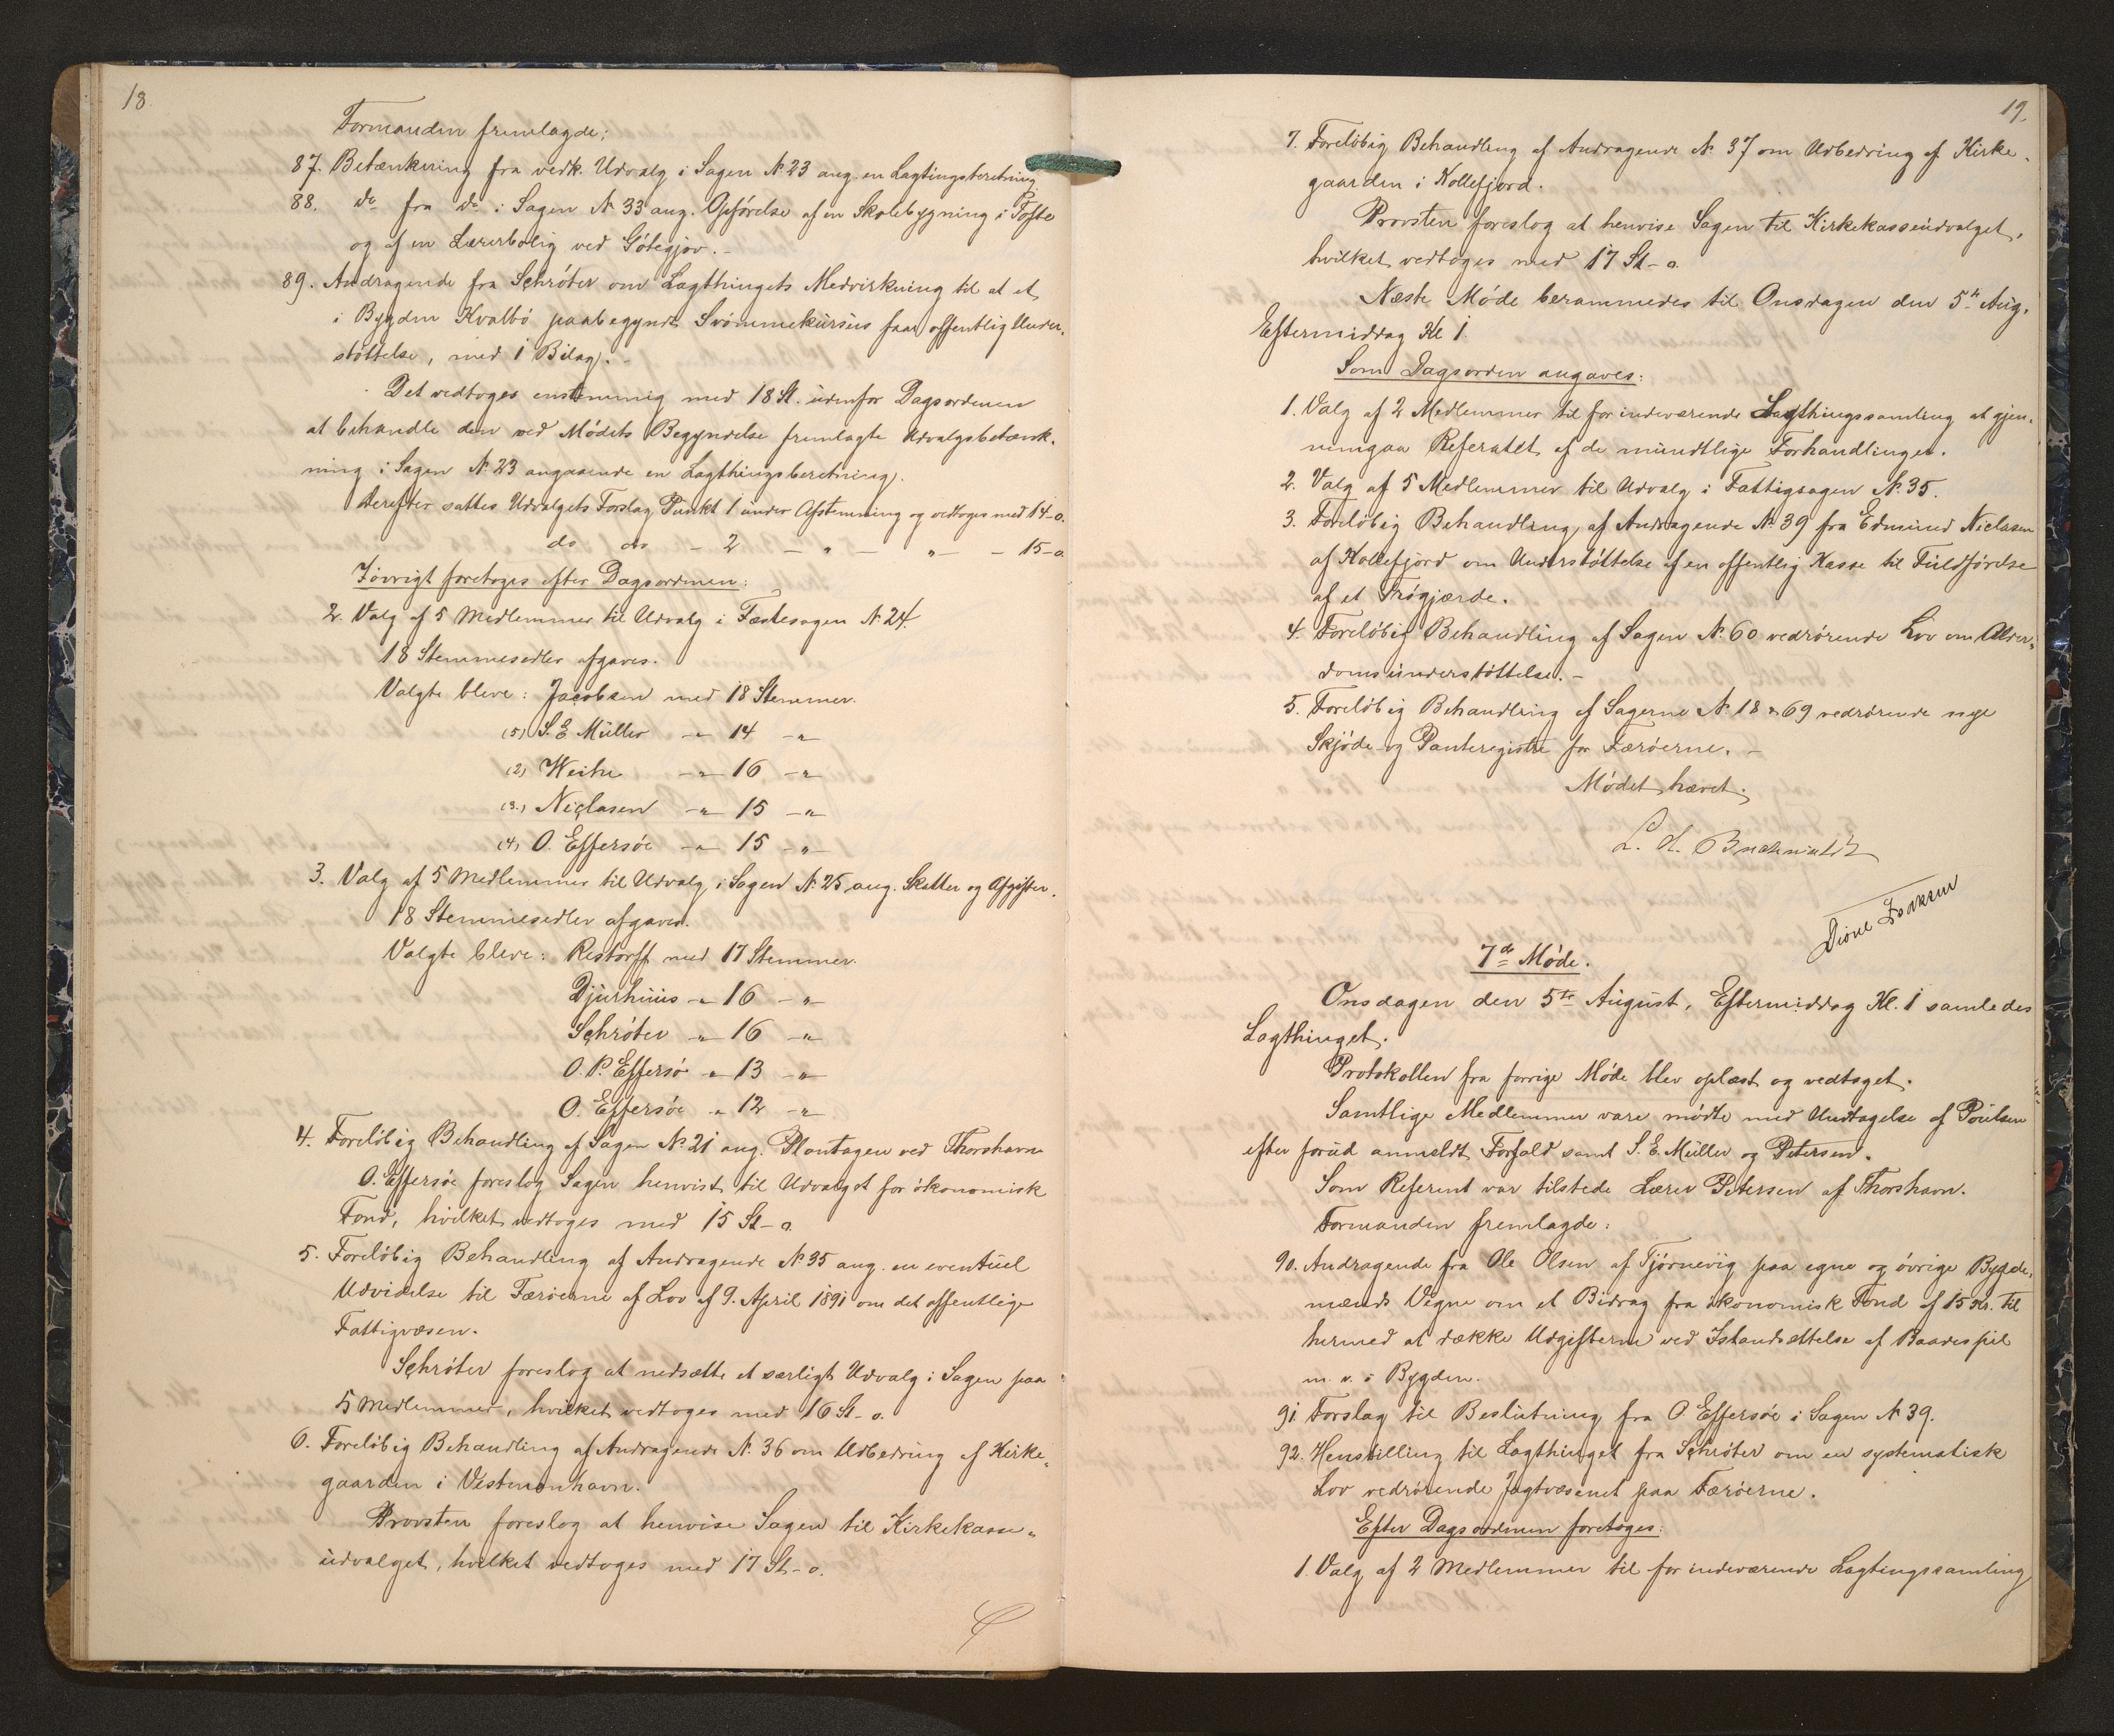 18
Formanden fremlagde:
87. Betænkning fra vedk. Udvalg i Sagen № 23 ang. en Lagtingsberetning.
88. do fra do i Sagen № 33 ang. Opførelse af en Skolebygning i Tofte
og af en Lærerbolig ved Gøtegjov.-
89. Andragende fra Schrøter om Lagthingets Medvirkning til at et
i Bygden Kvalbø paabegyndt Svømmekursus faar offentlig Under-
støttelse, med 1 Bilag.-
Det vedtoges enstemmig med 18 St. udenfor Dagsordenen
at behandle den ved Mødets Begyndelse fremlagte Udvalgsbetænk-
ning i Sagen № 23 angaaende en Lagthingsberetning.
Derefter sattes Udvalgets Forslag Punkt 1 under Afstemning og vedtoges med 14-0.
do do - 2 - " - " - 15-0
Iøvrigt foretoges efter Dagsordenen:
2. Valg af 5 Medlemmer til Udvalg i Fæstesagen № 24.
18 Stemmesedler afgaves.
Valgte bleve: Jacobsen med 18 Stemmer.
(5) S. E. Müller -"- 14 -"-
(2) Weihe -"- 16 -"-
(3.) Niclasen -"- 15 -"-
(4) O. Effersøe -"- 15 -"-
3. Valg af 5 Medlemmer til Udvalg i Sagen № 25 ang. Skatter og Afgifter.
18 Stemmesedler afgaves.
Valgte bleve: Restorff med 17 Stemmer.
Djurhuus -"- 16 -"-
Schrøter -"- 16 -"-
O. P. Effersø -"- 13 -"-
O. Effersøe -"- 12 -"-
4. Foreløbig Behandling af Sagen № 21 ang. Plantagen ved Thorshavn
O. Effersøe foreslog Sagen henvist til Udvalget for økonomisk
Fond, hvilket vedtoges med 15 St-0.
5. Foreløbig Behandling af Andragende № 35 ang. en eventuel
Udvidelse til Færøerne af Lov af 9. April 1891 om det offentlige
Fattigvæsen.
Schrøter foreslog at nedsætte et særligt Udvalg i Sagen paa
5 Medlemmer, hvilket vedtoges med 16 St-0.
6. Foreløbig Behandling af Andragende № 36 om Udbedring af Kirke-
gaarden i Vestmanhavn.
Provsten foreslog at henvise Sagen til Kirkekasse-
udvalget, hvilket vedtoges med 17 St-0.
19.
7. Foreløbig Behandling af Andragende № 37 om Udbedring af Kirke-
gaarden i Kollefjord.
Provsten foreslog at henvise Sagen til Kirkekasseudvalget,
hvilket vedtoges med 17 St-0.
Næste Møde berammedes til Onsdagen den 5te Aug.
Eftermiddag Kl 1.
Som Dagsorden angaves:
1. Valg af 2 Medlemmer til for indeværende Lagthingssamling at gjen-
nemgaa Referatet af de mundtlige Forhandlinger.
2. Valg af 5 Medlemmer til Udvalg i Fattigsagen № 35.
3. Foreløbig Behandling af Andragende № 39 fra Edmund Niclasen
af Kollefjord om Understøttelse af en offentlig Kasse til Fuldførelse
af et Trøgjærde.
4. Foreløbig Behandling af Sagen № 60 vedrørende Lov om Alder-
domsunderstøttelse.-
5. Foreløbig Behandling af Sagerne № 18 & 69 vedrørende nye
Skjøde og Panteregistre for Færøerne. -
Mødet hævet.
7de Møde.
Onsdagen den 5te August, Eftermiddag Kl. 1 samledes
Lagthinget.
Protokollen fra forrige Møde blev oplæst og vedtaget.
Samtlige Medlemmer vare mødte med Undtagelse af Poulsen
efter forud anmeldt Forfald samt S. E. Müller og Petersen.
Som Referent var tilstede Lærer Petersen af Thorshavn.
Formanden fremlagde:
90. Andragende fra Ole Olsen af Tjørnevig paa egne og øvrige Bygde-
mænds Vegne om et Bidrag fra økonomisk Fond af 15 Kr. til
hermed at dække Udgifterne ved Istandsættelse af Baadespil
m. v. i Bygden.
91. Forslag til Beslutning fra O Effersøe i Sagen № 39.
92. Henstilling til Lagthinget fra Schrøter om en systematisk
Lov vedrørende Jagtvæsenet paa Færøerne.
Efter Dagsordenen foretoges:
1. Valg af 2 Medlemmer til for indeværende Lagtingssamling